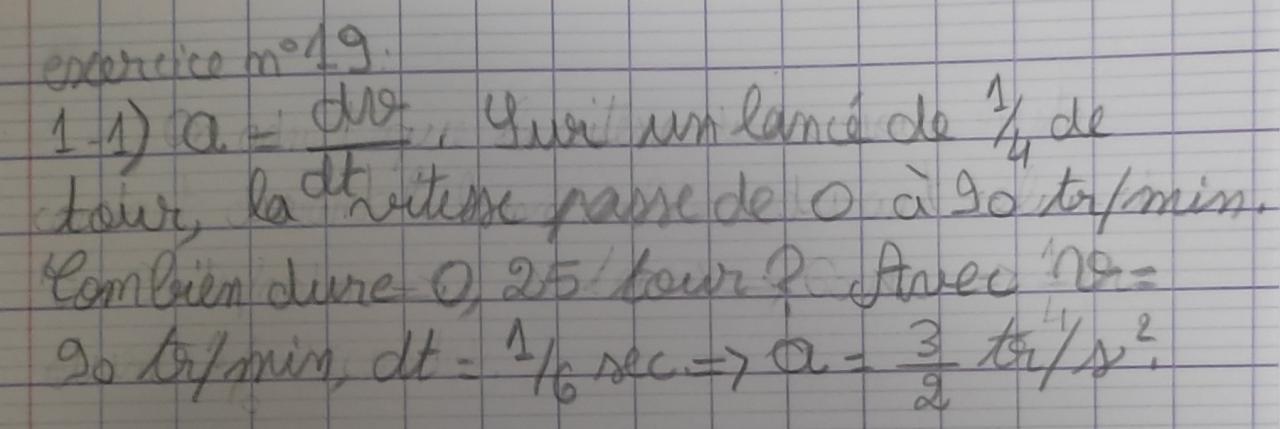 exercice n°19.
1-1) a = dv/dt. Sur un lancé de 1/4 de
tour, la vitesse passe de 0 à 90 tr/min.
Combien dure 0,25 tour ? Avec v =
90 tr/min, dt = 1/6 sec => a = 3/2 tr/s².